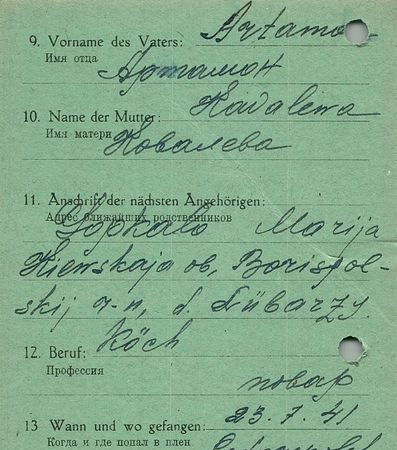 9. Vorname des Vaters: Artamo
Имя отца
Артамон
10. Name der Mutter: Kavalewa
Имя матери
Ковалева
11. Anschrift der nächsten Angehörigen:
Адрес ближайших родственников
Marija
Kiewskaja ob, Borispol-
skij r-n, d.
12. Beruf: Köch
Профессия
повар
13 Wann und wo gefangen: 23.7.41
Когда и где попал в плен